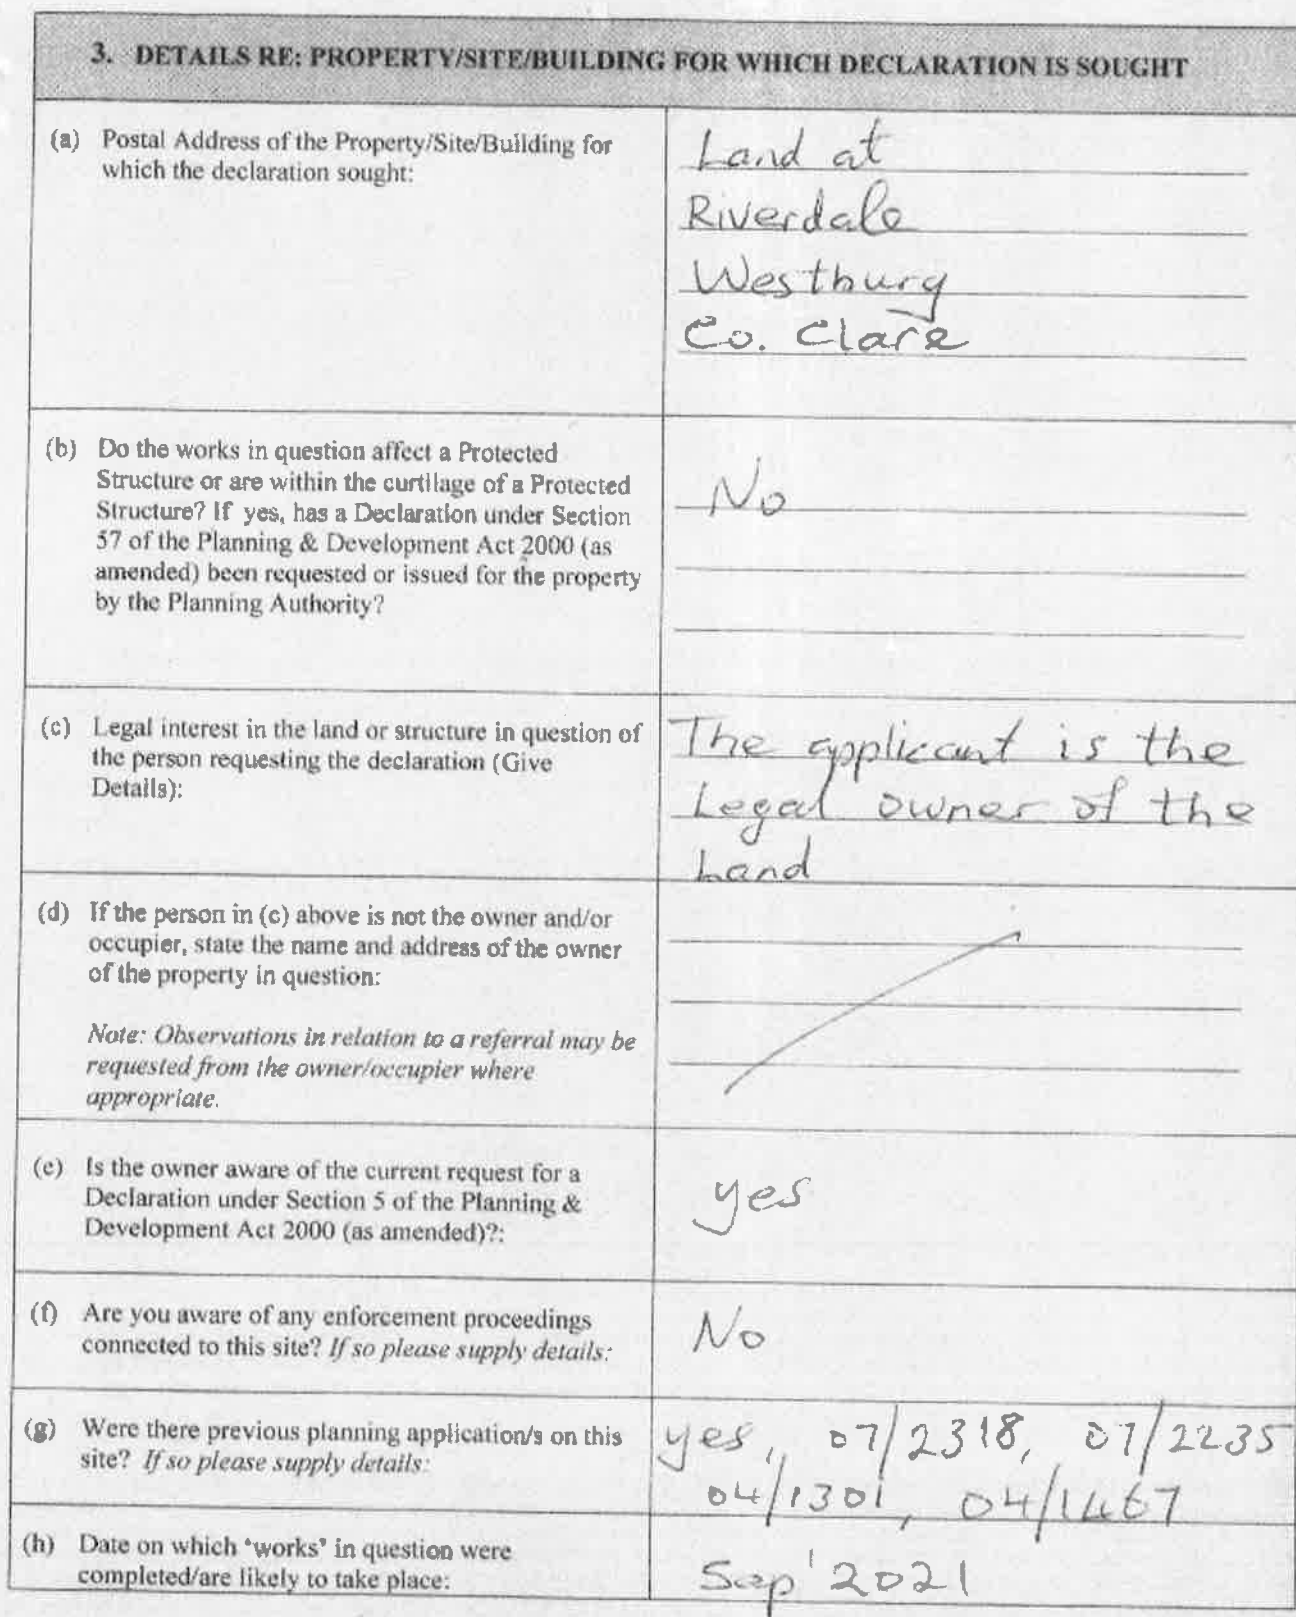 3. DETAILS RE: PROPERTY/SITE/BUILDING FOR WHICH DECLARATION IS SOUGHT
(a) Postal Address of the Property/Site/Building for
which the declaration sought:
Land at
Riverdale
Westbury
Co. Clare
(b) Do the works in question affect a Protected
Structure or are within the curtilage of a Protected
Structure? If yes, has a Declaration under Section
57 of the Planning & Development Act 2000 (as
amended) been requested or issued for the property
by the Planning Authority?
No
(c) Legal interest in the land or structure in question of
the person requesting the declaration (Give
Details):
The applicant is the
Legal owner of the
Land
(d) If the person in (c) above is not the owner and/or
occupier, state the name and address of the owner
of the property in question:
Note: Observations in relation to a referral may be
requested from the owner/occupier where
appropriate.
(e) Is the owner aware of the current request for a
Declaration under Section 5 of the Planning &
Development Act 2000 (as amended)?:
yes
(f) Are you aware of any enforcement proceedings
connected to this site? If so please supply details:
No
(g) Were there previous planning application/s on this
site? If so please supply details:
yes, 07/2318, 07/2235
04/1301, 04/1467
(h) Date on which 'works' in question were
completed/are likely to take place:
Sep' 2021